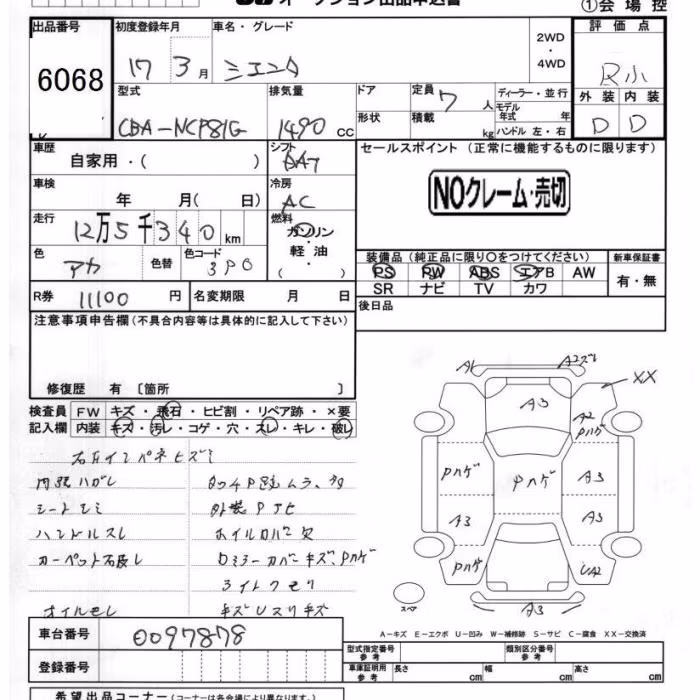 オークション出品申込書
①会場控
出品番号 初度登録年月 車名・グレード 2WD・4WD 評価点
6068 17 3月 シエンタ
型式 排気量 ドア 定員 7人 ディーラー・並行 外装 内装
CBA-NCP81G 1490 CC 形状 積載 kg モデル年式 年 ハンドル 左・右 D D
車歴 自家用・( ) シフト セールスポイント (正常に機能するものに限ります)
車検 年 月( 日) 冷房 AC NOクレーム・売切
走行 12万5千340km 燃料 ガソリン・軽油・( )
色 アカ 色替 色コード 3P0 装備品 (純正品に限り○をつけてください) 新車保証書
PS PW ABS エアB AW 有・無
SR ナビ TV カワ
R券 11100円 名変期限 月 日 後日品
注意事項申告欄 (不具合内容等は具体的に記入して下さい)
修復歴 有 [箇所 ]
検査員 FW キズ・飛石・ヒビ割・リペア跡・×要
記入欄 内装 キズ・汚レ・コゲ・穴・スレ・キレ・破レ
内張ハガレ
シートシミ
ハンドルスレ ホイルカバー欠
カーペット
ドアミラーカバーキズ、Pハゲ
ライトクモリ
オイルモレ
A1 A2 XX
A3 A2 Pハゲ
Pハゲ Pハゲ A3
A3 A3
Pハゲ UA2
スペア A3
A-キズ E-エクボ U-凹み W-補修跡 S-サビ C-腐食 XX-交換済
車台番号 0097878
登録番号
型式指定番号 参考 類別区分番号 参考
車庫証明用 参考 長さ cm 幅 cm 高さ cm
希望出品コーナー (コーナーは各会場により異なります)